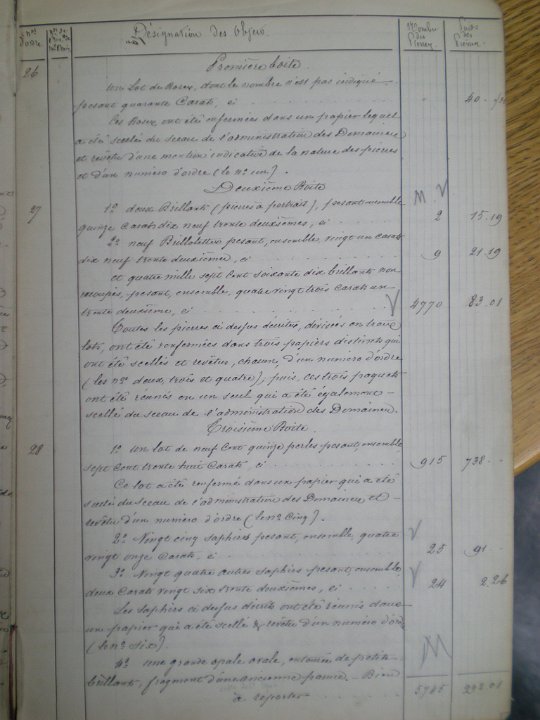 Désignation des objets
Nombre des Pierres
Poids des Pierres
26
Première boîte
Un lot de Roses, dont le nombre n'est pas indiqué
pesant quarante Carats, ci 40
Ces Roses ont été enfermées dans un papier lequel
a été scellé du sceau de l'administration des Domaines
et revêtu d'une mention indicative de la nature des pierres
et d'un numéro d'ordre (le no un).
Deuxième Boîte
27
1o deux Brillants (pierres à portrait), pesant, ensemble
quinze Carats dix neuf trente deuxièmes, ci 2 15.19
2o neuf Brillolettes pesant, ensemble, vingt un carats
dix neuf trente deuxième, ci 9 21.19
et quatre mille sept cent soixante dix brillants non
pesant, ensemble, quatre vingt trois Carats un
trente deuxième, ci 4770 83.01
Toutes les pierres ci dessus décrites, divisées en trois
lots, ont été renfermées dans trois papiers distincts qui
ont été scellés et revêtus, chacun, d'un numéro d'ordre
(les nos deux, trois et quatre), puis, ces trois paquets
ont été réunis en un seul qui a été également
scellé du sceau de l'administration des Domaines.
Troisième Boîte
28
1o un lot de neuf cent quinze perles pesant, ensemble
sept cent trente huit Carats ci 915 738
Ce lot a été enfermé dans un papier qui a été
scellé du sceau de l'administration des Domaines et
revêtu d'un numéro d'ordre (le no Cinq).
2o Vingt cinq saphirs pesant, ensemble, quatre
vingt onze Carats, ci 25 91
3o Vingt quatre autres saphirs pesant, ensemble
deux Carats vingt six trente deuxièmes, ci 24 2.26
Les saphirs ci dessus décrits ont été réunis dans
un papier qui a été scellé & revêtu d'un numéro d'ordre
(le no six).
4o une grande opale ovale, entourée de petits
brillants, fragment d'une ancienne parure
à reporter 5745